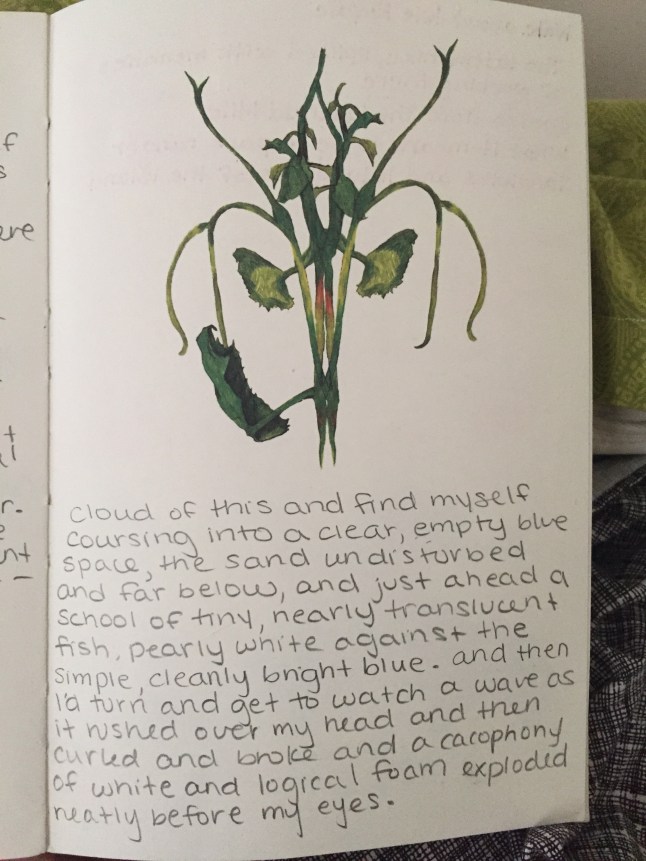 f
s
ere
t
al
r.
e
unt
cloud of this and find myself
coursing into a clear, empty blue
space, the sand undisturbed
and far below, and just ahead a
school of tiny, nearly translucent
fish, pearly white against the
simple, cleanly bright blue. and then
I'd turn and get to watch a wave as
it rushed over my head and then
curled and broke and a cacophony
of white and logical foam exploded
neatly before my eyes.